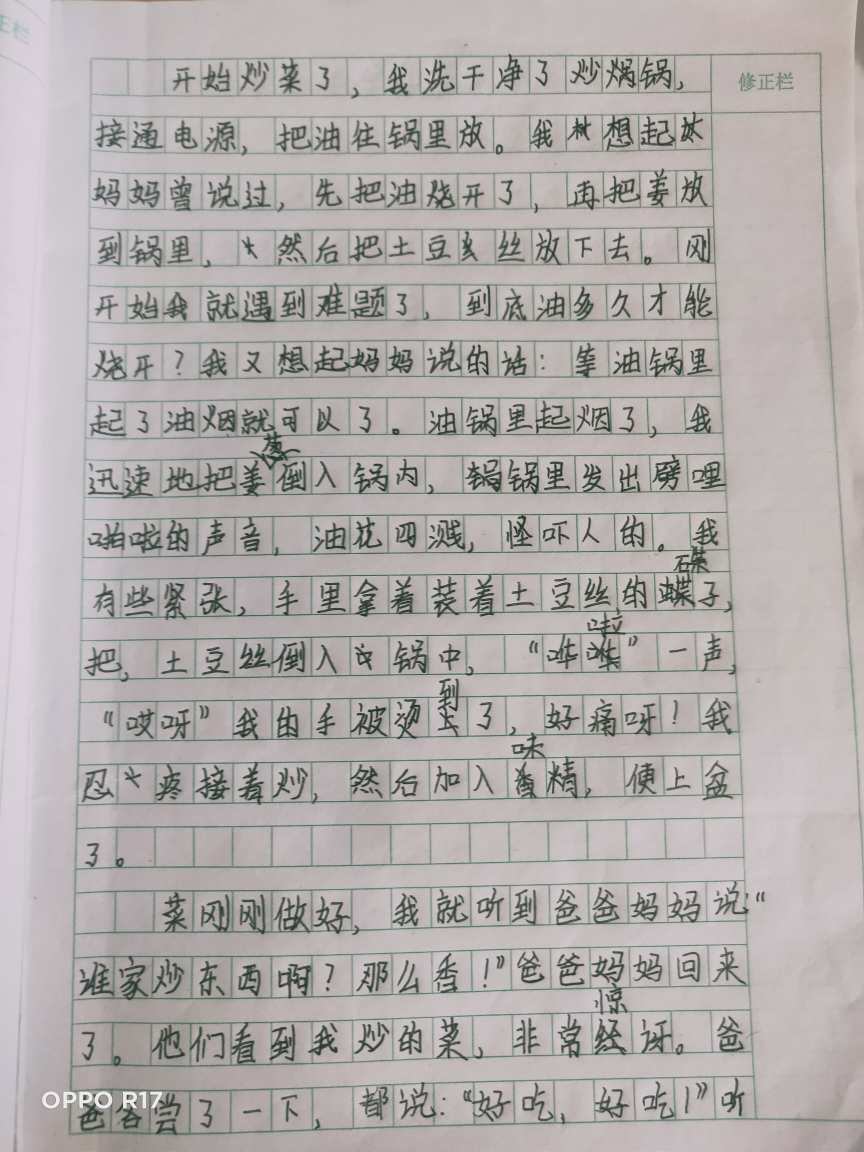 正栏
修正栏
开始炒菜了，我洗干净了炒焗锅，
接通电源，把油往锅里放。我想起
妈妈曾说过，先把油烧开了，再把姜放
到锅里，然后把土豆丝放下去。刚
开始我就遇到难题了，到底油多久才能
烧开？我又想起妈妈说的话：等油锅里
起了油烟就可以了。油锅里起烟了，我
葱
迅速地把姜倒入锅内，锅锅里发出劈哩
啪啦的声音，油花四溅，怪吓人的。我
碟
有些紧张，手里拿着装着土豆丝的蝶子，
啦
把，土豆丝倒入锅中，“哗”一声，
到
“哎呀”我的手被烫了，好痛呀！我
味
忍疼接着炒，然后加入香精，便上盆
了。
菜刚刚做好，我就听到爸爸妈妈说：“
谁家炒东西啊？那么香！”爸爸妈妈回来
惊
了。他们看到我炒的菜，非常经讶。爸
爸爸尝了一下，都说：“好吃，好吃！”听
OPPO R17